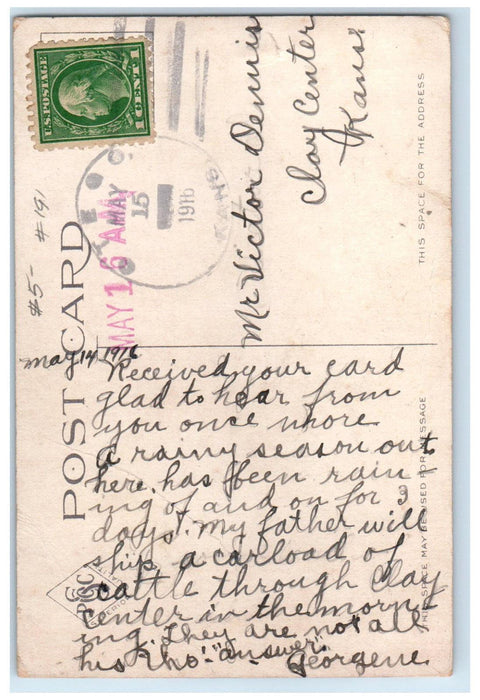 U.S. POSTAGE
1 CENT 1
MAY
15
1916
KANS.
MAY 16 AM
#5- #191
POST CARD
Mr Victor Dennis
Clay Center
Kans.
THIS SPACE FOR THE ADDRESS
May 14 1916
Received your card
glad to hear from
you once more
a rainy season out
here, has been rain-
ing of and on for 3
days. My father will
ship a carload of
cattle through Clay
Center in the morn-
ing. They are not all
his tho. "answer."
Georgene
THIS SPACE MAY BE USED FOR MESSAGE